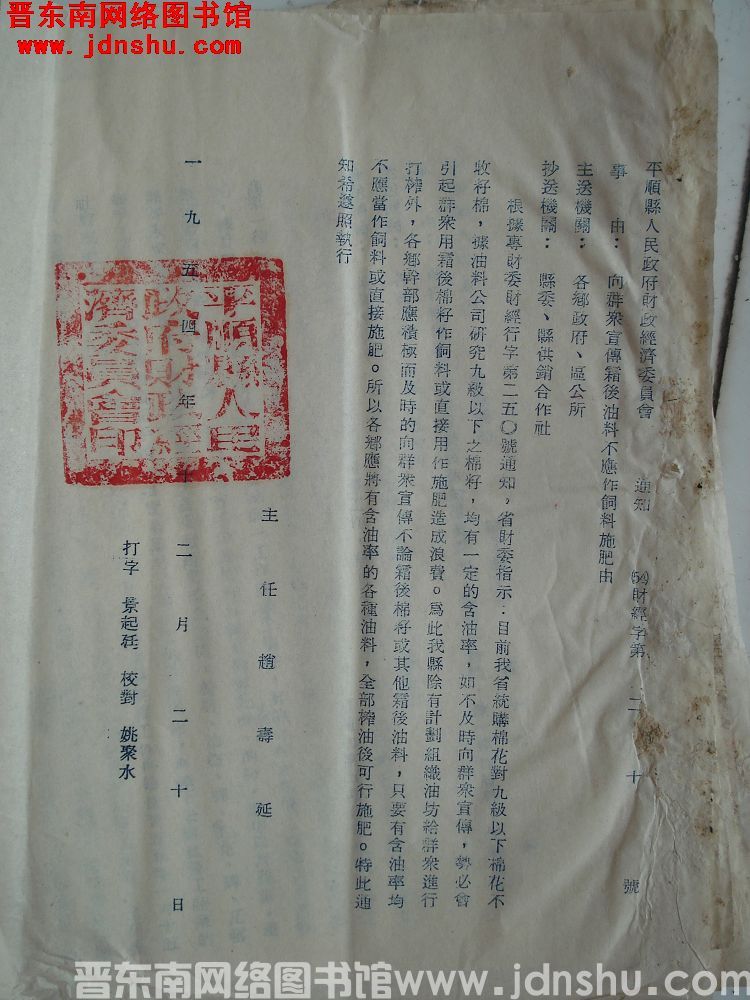 晋东南网络图书馆
www.jdnshu.com
平順縣人民政府財政經濟委員會 通知 (54)財經字第二十號
事由：向群衆宣傳霜後油料不應作飼料施肥由
主送機關：各鄉政府、區公所
抄送機關：縣委、縣供銷合作社
根據專財委財經行字第二五〇號通知，省財委指示：目前我省統購棉花對九級以下棉花不
收籽棉，據油料公司研究九級以下之棉籽，均有一定的含油率，如不及時向群衆宣傳，勢必會
引起群衆用霜後棉籽作飼料或直接用作施肥造成浪費。爲此我縣除有計劃組織油坊給群衆進行
打榨外，各鄉幹部應積極而及時的向群衆宣傳不論霜後棉籽或其他霜後油料，只要有含油率均
不應當作飼料或直接施肥。所以各鄉應將有含油率的各種油料，全部榨油後可行施肥。特此通
知希遵照執行
主任 趙壽延
一九五四年十二月二十日
平順縣人民政府財政經濟委員會印
打字 景起廷 校對 姚聚水
晋东南网络图书馆www.jdnshu.com